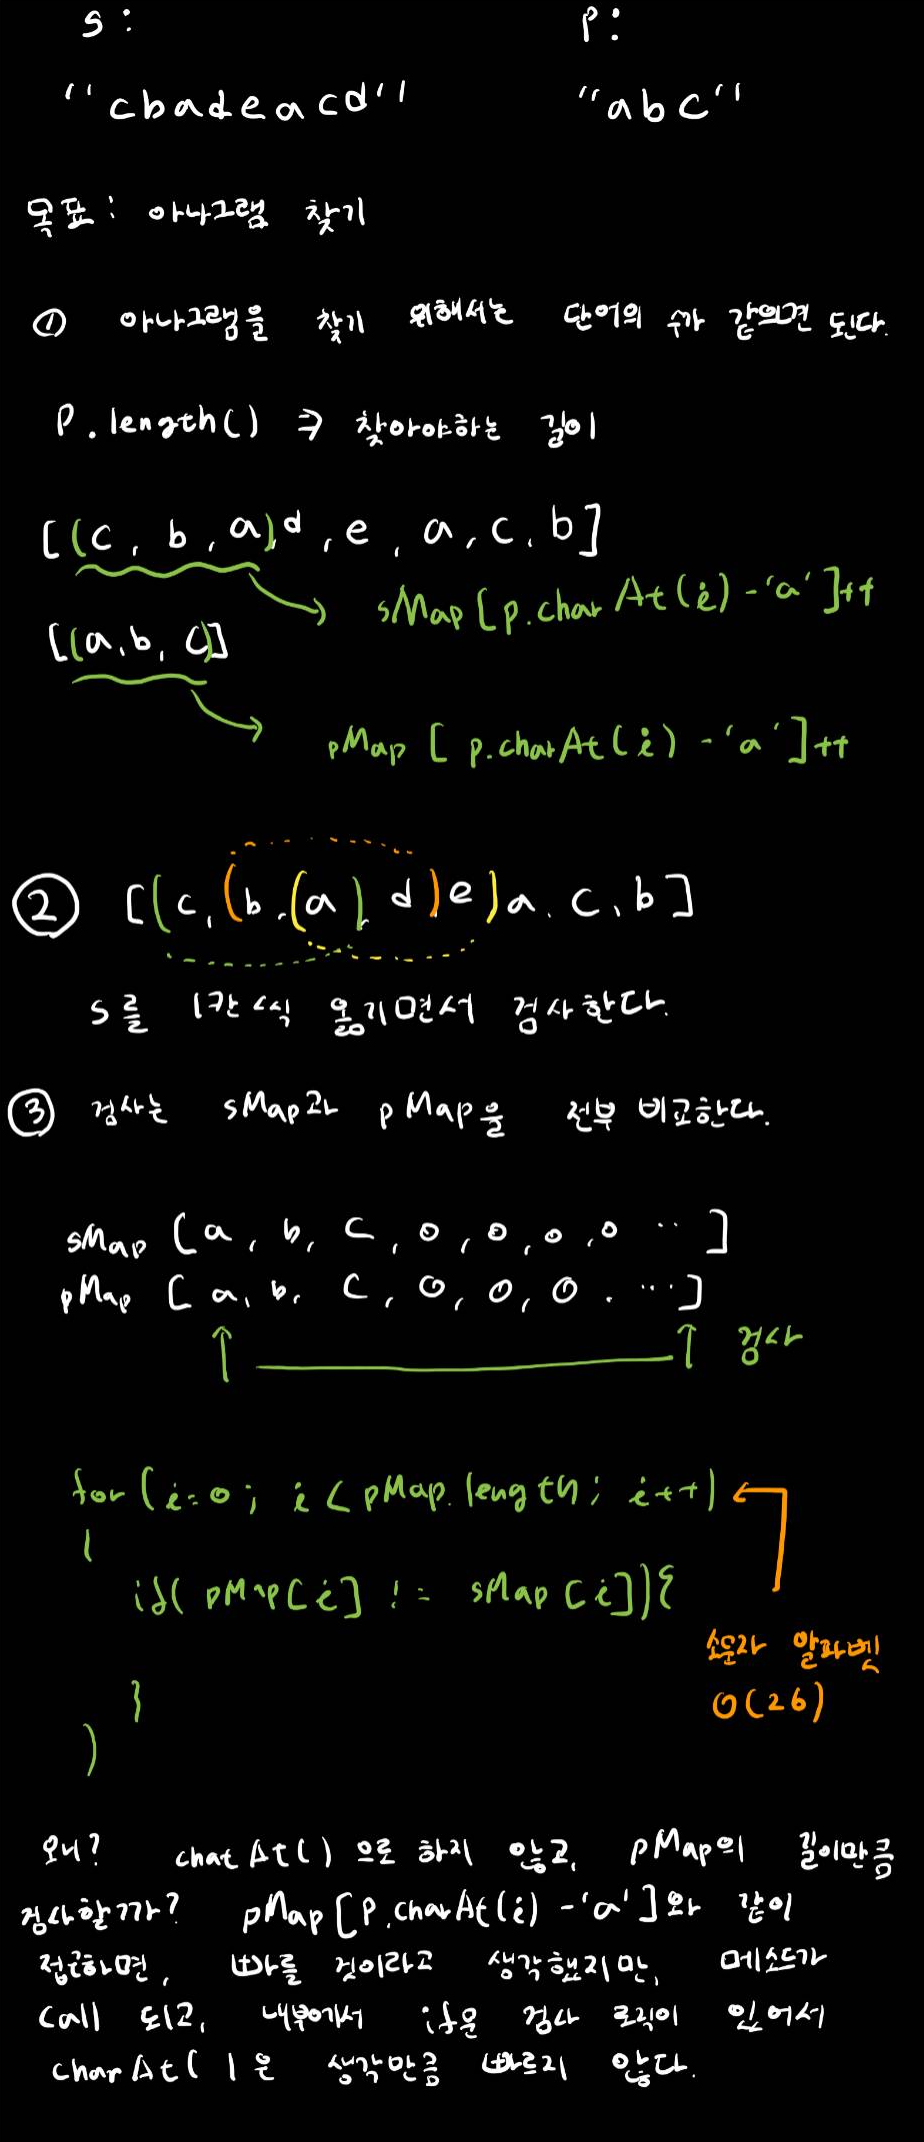 s : p :
"cbadeacd" "abc"
목표 : 아나그램 찾기
① 아나그램을 찾기 위해서는 단어의 수가 같으면 된다.
P.length() => 찾아야하는 길이
[(c, b, a), d, e, a, c, b]
sMap [p.charAt(i) - 'a']++
[(a, b, c)]
pMap [p.charAt(i) - 'a']++
② [(c, (b, (a), d) e) a, c, b]
s를 1칸씩 옮기면서 검사한다.
③ 검사는 sMap과 pMap을 전부 비교한다.
sMap [a, b, c, 0, 0, 0, 0 ..]
pMap [a, b, c, 0, 0, 0. ...]
검사
for (i=0; i < pMap.length; i++)
{
if( pMap[i] != sMap[i]){
소문자 알파벳
O(26)
}
}
왜? chatAt()으로 하지 않고, pMap의 길이만큼
검사할까? pMap[P.charAt(i) - 'a']와 같이
접근하면, 빠를 것이라고 생각했지만, 메소드가
call 되고, 내부에서 if문 검사 로직이 있어서
charAt()은 생각만큼 빠르지 않다.